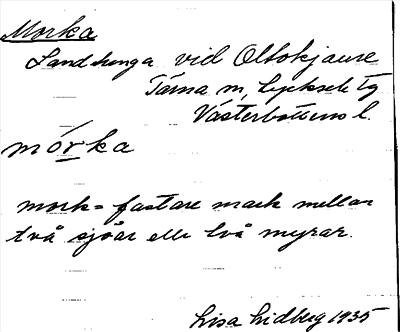 Morka
Landtunga vid Oltokjaure
Tärna sn, Lycksele tg
Västerbottens l.
mórka
mork = fastare mark mellan
två sjöar elle två myrar.
Lisa Lidberg 1935